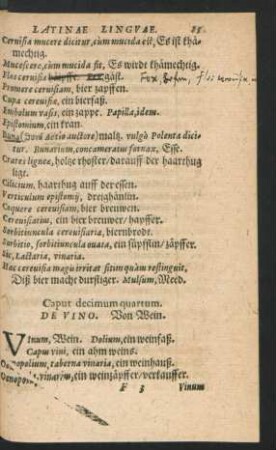 LATINAE LINGVAE. 85
Ceruisia mucere dicitur, cùm mucida est, Es ist thämechtig.
Mucescere, cùm mucida fit, Es wirdt thämechtig.
Flos ceruisiæ gäst.
Promere ceruisiam, bier zapffen.
Cupa cereuisiæ, ein bierfaß.
Embolum vasis, ein zappe. Papilla, idem.
Epistomium, ein kran.
(Aetio auctore) maltz. vulgò Polenta dicitur.
Bunarium, concameratus fornax, Esse.
Crates lignea, holtze rhoster/ darauff der haarthug
ligt.
Cilicium, haarthug auff der essen.
Verticulum epistomij, dreighänlin.
Coquere cereuisiam, bier breuwen.
Cereuisiarius, ein bier breuwer/ zapffer.
Sorbitiuncula cereuisiaria, biernbrodt.
Sorbitio, sorbitiuncula ouata, ein süpfflin/ zäpffer.
Sic, Lactaria, vinaria.
Hæc cereuisia magis irritat sitim quàm restinguit,
Diß bier macht durstiger. Mulsum, Meed.
Caput decimum quartum.
DE VINO. Von Wein.
VInum, Wein. Dolium, ein weinfaß.
Capus vini, ein ahm weins.
Oenopolium, taberna vinaria, ein weinhauß.
Oenopola, vinarius, ein weinzäpffer/ verkauffer.
F 3 Vinum